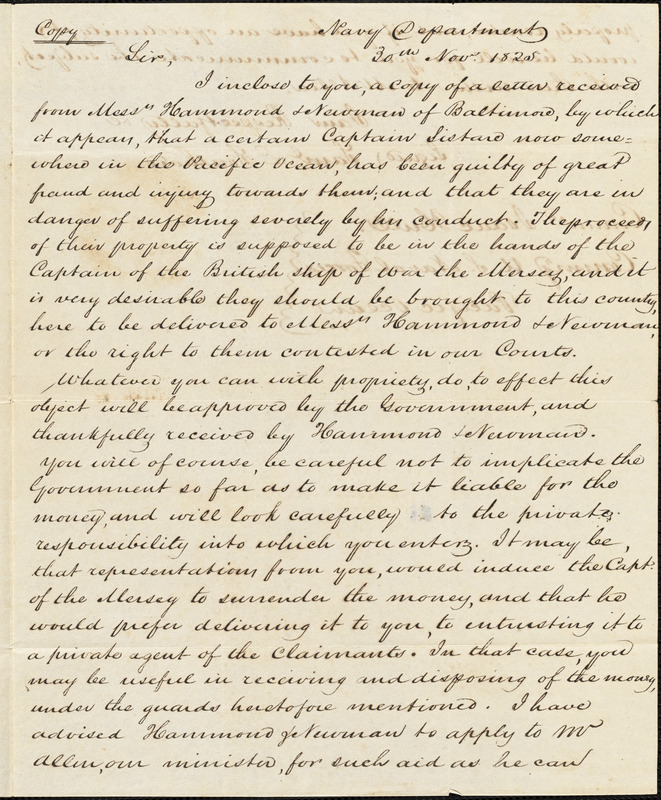 Copy Navy Department
Sir, 30th Novr. 1828
I inclose to you, a copy of a letter received
from Messrs Hammond & Newman of Baltimore, by which
it appears, that a certain Captain Sistare now some=
where in the Pacific Ocean, has been guilty of great
fraud and injury towards them; and that they are in
danger of suffering severely by his conduct. The proceeds
of their property is supposed to be in the hands of the
Captain of the British ship of War the Mersey, and it
is very desirable they should be brought to this country,
here to be delivered to Messrs Hammond & Newman,
or the right to them contested in our Courts.
Whatever you can with propriety, do, to effect this
object will be approved by the Government, and
thankfully received by Hammond & Newman.
You will of course, be careful not to implicate the
Government so far as to make it liable for the
money, and will look carefully to the private
responsibility into which you enter. It may be,
that representations from you, would induce the Capt.
of the Mersey to surrender the money, and that he
would prefer delivering it to you, to entrusting it to
a private agent of the Claimants. In that case, you
may be useful in receiving and disposing of the money,
under the guards heretofore mentioned. I have
advised Hammond & Newman to apply to Mr
Allen, our minister, for such aid as he can